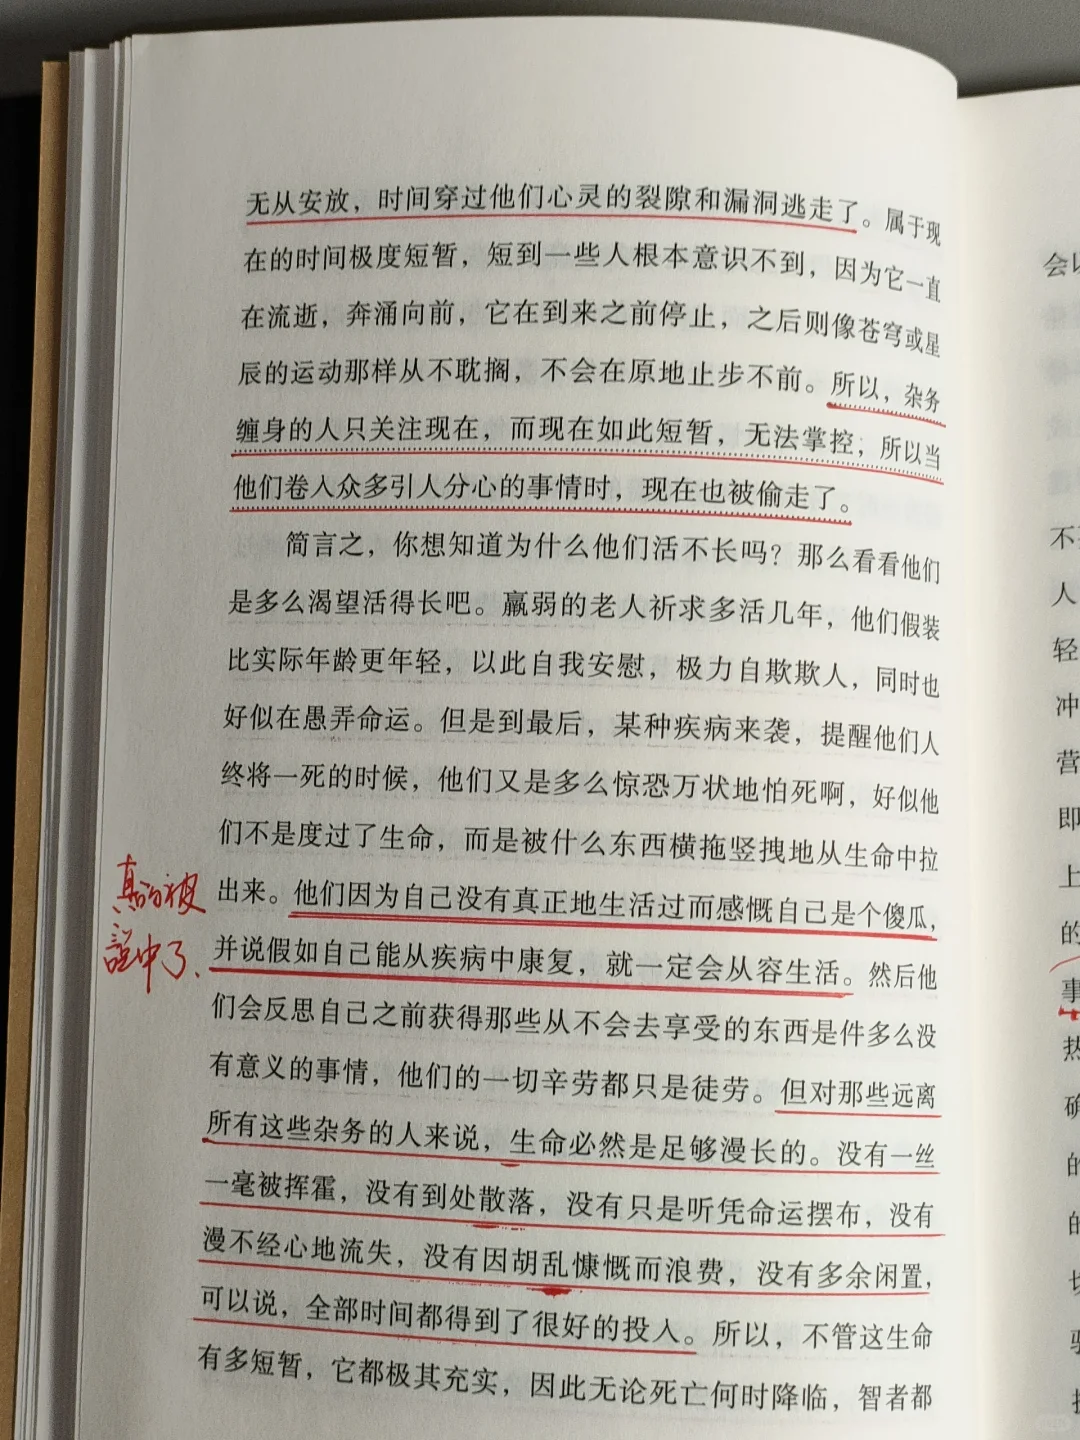 无从安放，时间穿过他们心灵的裂隙和漏洞逃走了。属于现
在的时间极度短暂，短到一些人根本意识不到，因为它一直
在流逝，奔涌向前，它在到来之前停止，之后则像苍穹或星
辰的运动那样从不耽搁，不会在原地止步不前。所以，杂务
缠身的人只关注现在，而现在如此短暂，无法掌控，所以当
他们卷入众多引人分心的事情时，现在也被偷走了。
简言之，你想知道为什么他们活不长吗？那么看看他们
是多么渴望活得长吧。羸弱的老人祈求多活几年，他们假装
比实际年龄更年轻，以此自我安慰，极力自欺欺人，同时也
好似在愚弄命运。但是到最后，某种疾病来袭，提醒他们人
终将一死的时候，他们又是多么惊恐万状地怕死啊，好似他
们不是度过了生命，而是被什么东西横拖竖拽地从生命中拉
出来。他们因为自己没有真正地生活过而感慨自己是个傻瓜，
并说假如自己能从疾病中康复，就一定会从容生活。然后他
们会反思自己之前获得那些从不会去享受的东西是件多么没
有意义的事情，他们的一切辛劳都只是徒劳。但对那些远离
所有这些杂务的人来说，生命必然是足够漫长的。没有一丝
一毫被挥霍，没有到处散落，没有只是听凭命运摆布，没有
漫不经心地流失，没有因胡乱慷慨而浪费，没有多余闲置，
可以说，全部时间都得到了很好的投入。所以，不管这生命
有多短暂，它都极其充实，因此无论死亡何时降临，智者都
真的被
說中了、
会
不
人
轻
冲
营
即
上
的
事
热
确
的
的